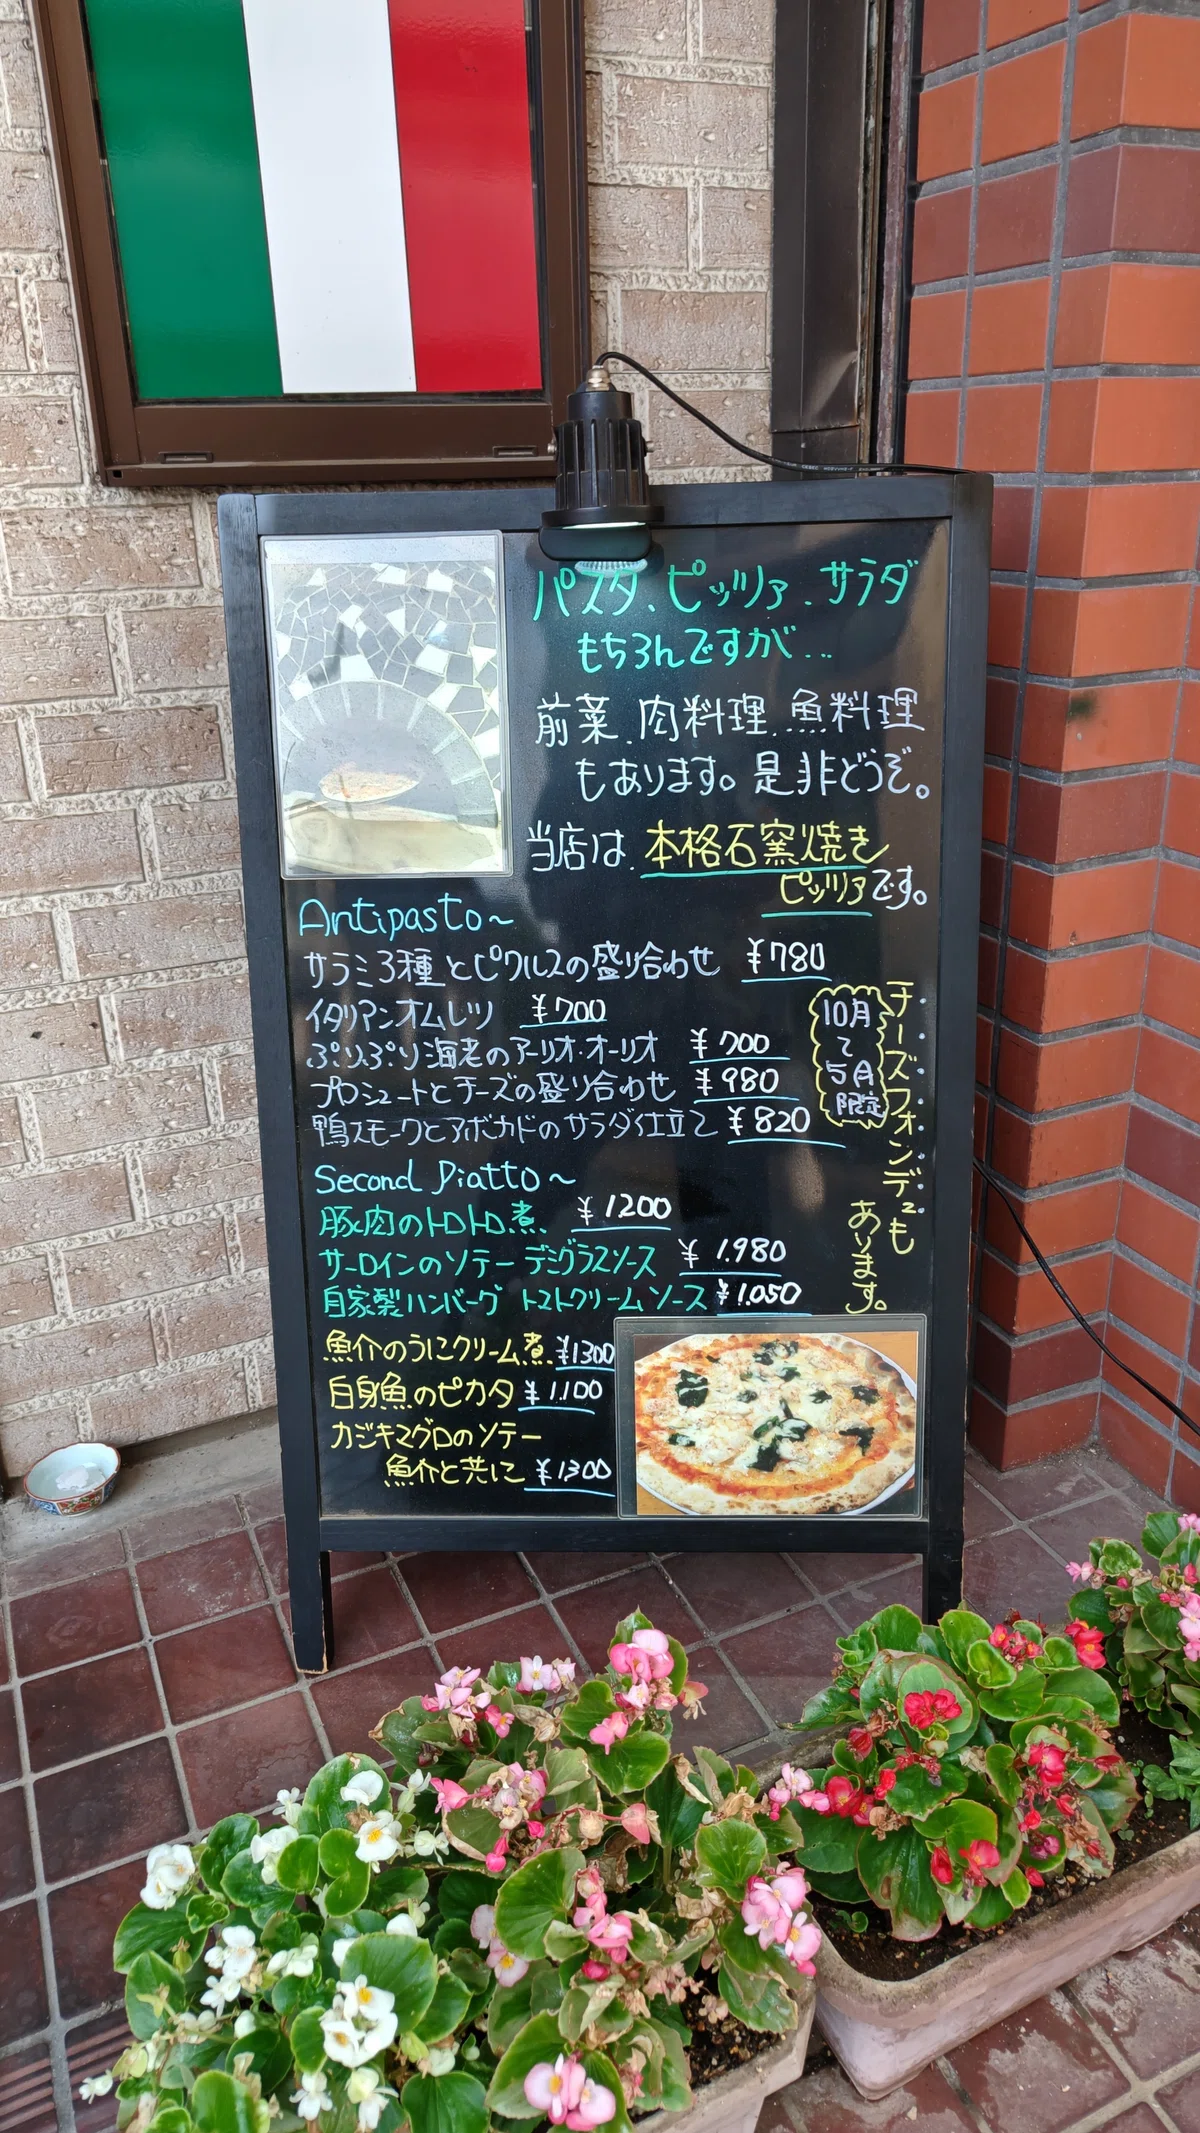 パスタ、ピッツァ、サラダ
もちろんですが…
前菜、肉料理、魚料理
もあります。是非どうぞ。
当店は、本格石窯焼き
ピッツァです。
Antipasto～
サラミ3種とピクルスの盛り合わせ ¥780
イタリアンオムレツ ¥700
ぷりぷり海老のアーリオ・オーリオ ¥700
プロシュートとチーズの盛り合わせ ¥980
鴨スモークとアボカドのサラダ仕立て ¥820
10月
～
5月
限定
チーズフォンデュも
あります。
Second Piatto～
豚肉のトロトロ煮 ¥1200
サーロインのソテー デミグラスソース ¥1.980
自家製ハンバーグ トマトクリームソース ¥1.050
魚介のうにクリーム煮 ¥1300
白身魚のピカタ ¥1.100
カジキマグロのソテー
魚介と共に ¥1300